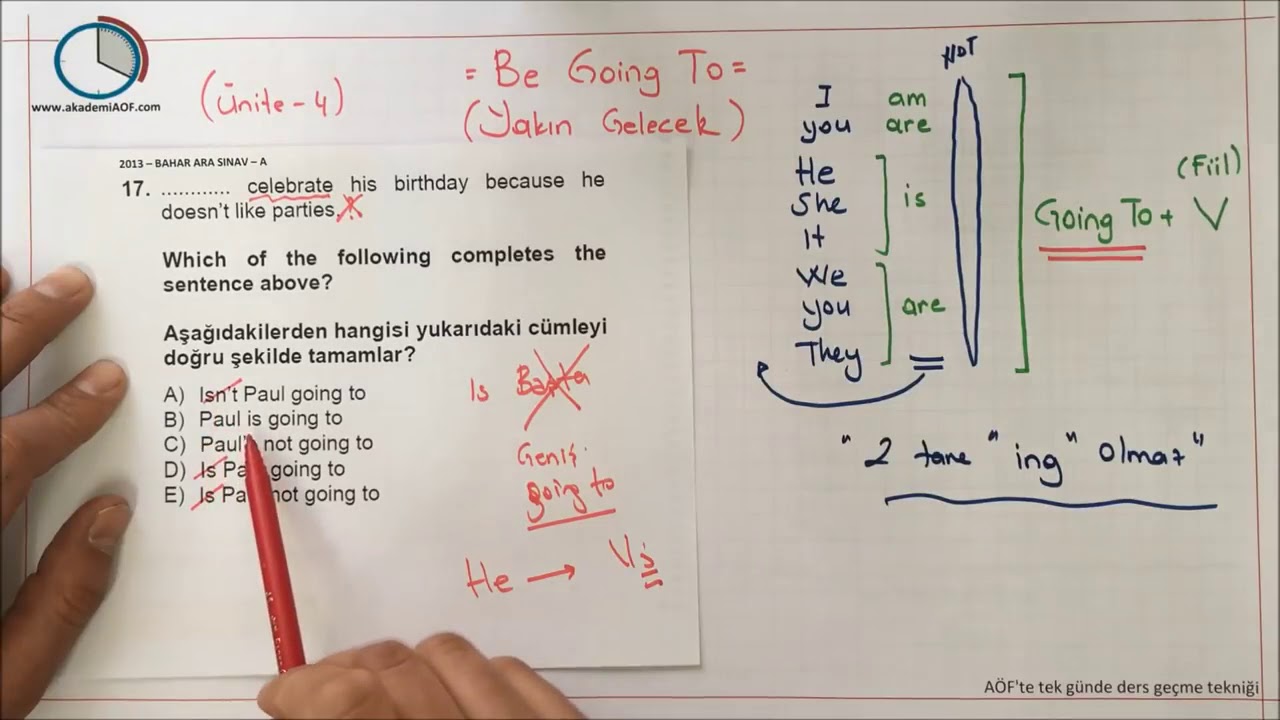 www.akademiAOF.com
(Ünite-4)
= Be Going To =
(Yakın Gelecek)
2013 – BAHAR ARA SINAV – A
17. ............ celebrate his birthday because he
doesn't like parties.
Which of the following completes the
sentence above?
Aşağıdakilerden hangisi yukarıdaki cümleyi
doğru şekilde tamamlar?
A) Isn't Paul going to
B) Paul is going to
C) Paul' not going to
D) Is going to
E) Is not going to
Is Başta
Geniş
going to
He → Vs
NOT
I am
you are
He
She is
It
We
you are
They
(Fiil)
Going To + V
"2 tane "ing" Olmaz"
AÖF'te tek günde ders geçme tekniği